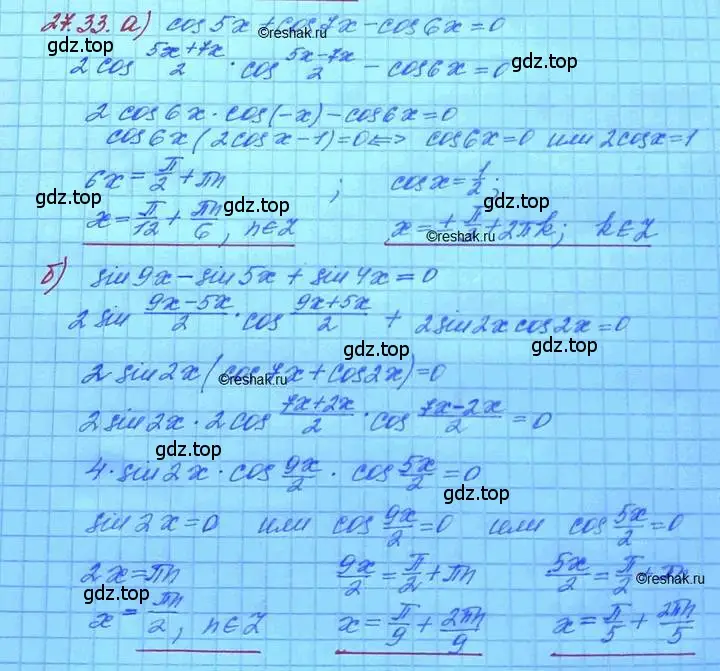 27.33. а) cos 5x + cos 7x − cos 6x = 0
©reshak.ru
gdz.top
gdz.top
2 cos (5x+7x)/2 · cos (5x−7x)/2 − cos 6x = 0
2 cos 6x · cos(−x) − cos 6x = 0
cos 6x (2cos x − 1) = 0 <=> cos 6x = 0 или 2cos x = 1
6x = π/2 + πn ; cos x = 1/2 ;
gdz.top
gdz.top
x = π/12 + πn/6, n∈Z x = ± π/ + 2πk; k∈Z
©reshak.ru
б) sin 9x − sin 5x + sin 4x = 0
2 sin (9x−5x)/2 · cos (9x+5x)/2 + 2 sin 2x cos 2x = 0
gdz.top
gdz.top
2 sin 2x (cos 7x + cos 2x) = 0
©reshak.ru
2 sin 2x · 2 cos (7x+2x)/2 · cos (7x−2x)/2 = 0
gdz.top
4 · sin 2x · cos 9x/2 · cos 5x/2 = 0
gdz.top
sin 2x = 0 или cos 9x/2 = 0 или cos 5x/2 = 0
2x = πn 9x/2 = π/2 + πn 5x/2 = π/2 + πn
©reshak.ru
gdz.top
x = πn/2, n∈Z x = π/9 + 2πn/9 x = π/5 + 2πn/5